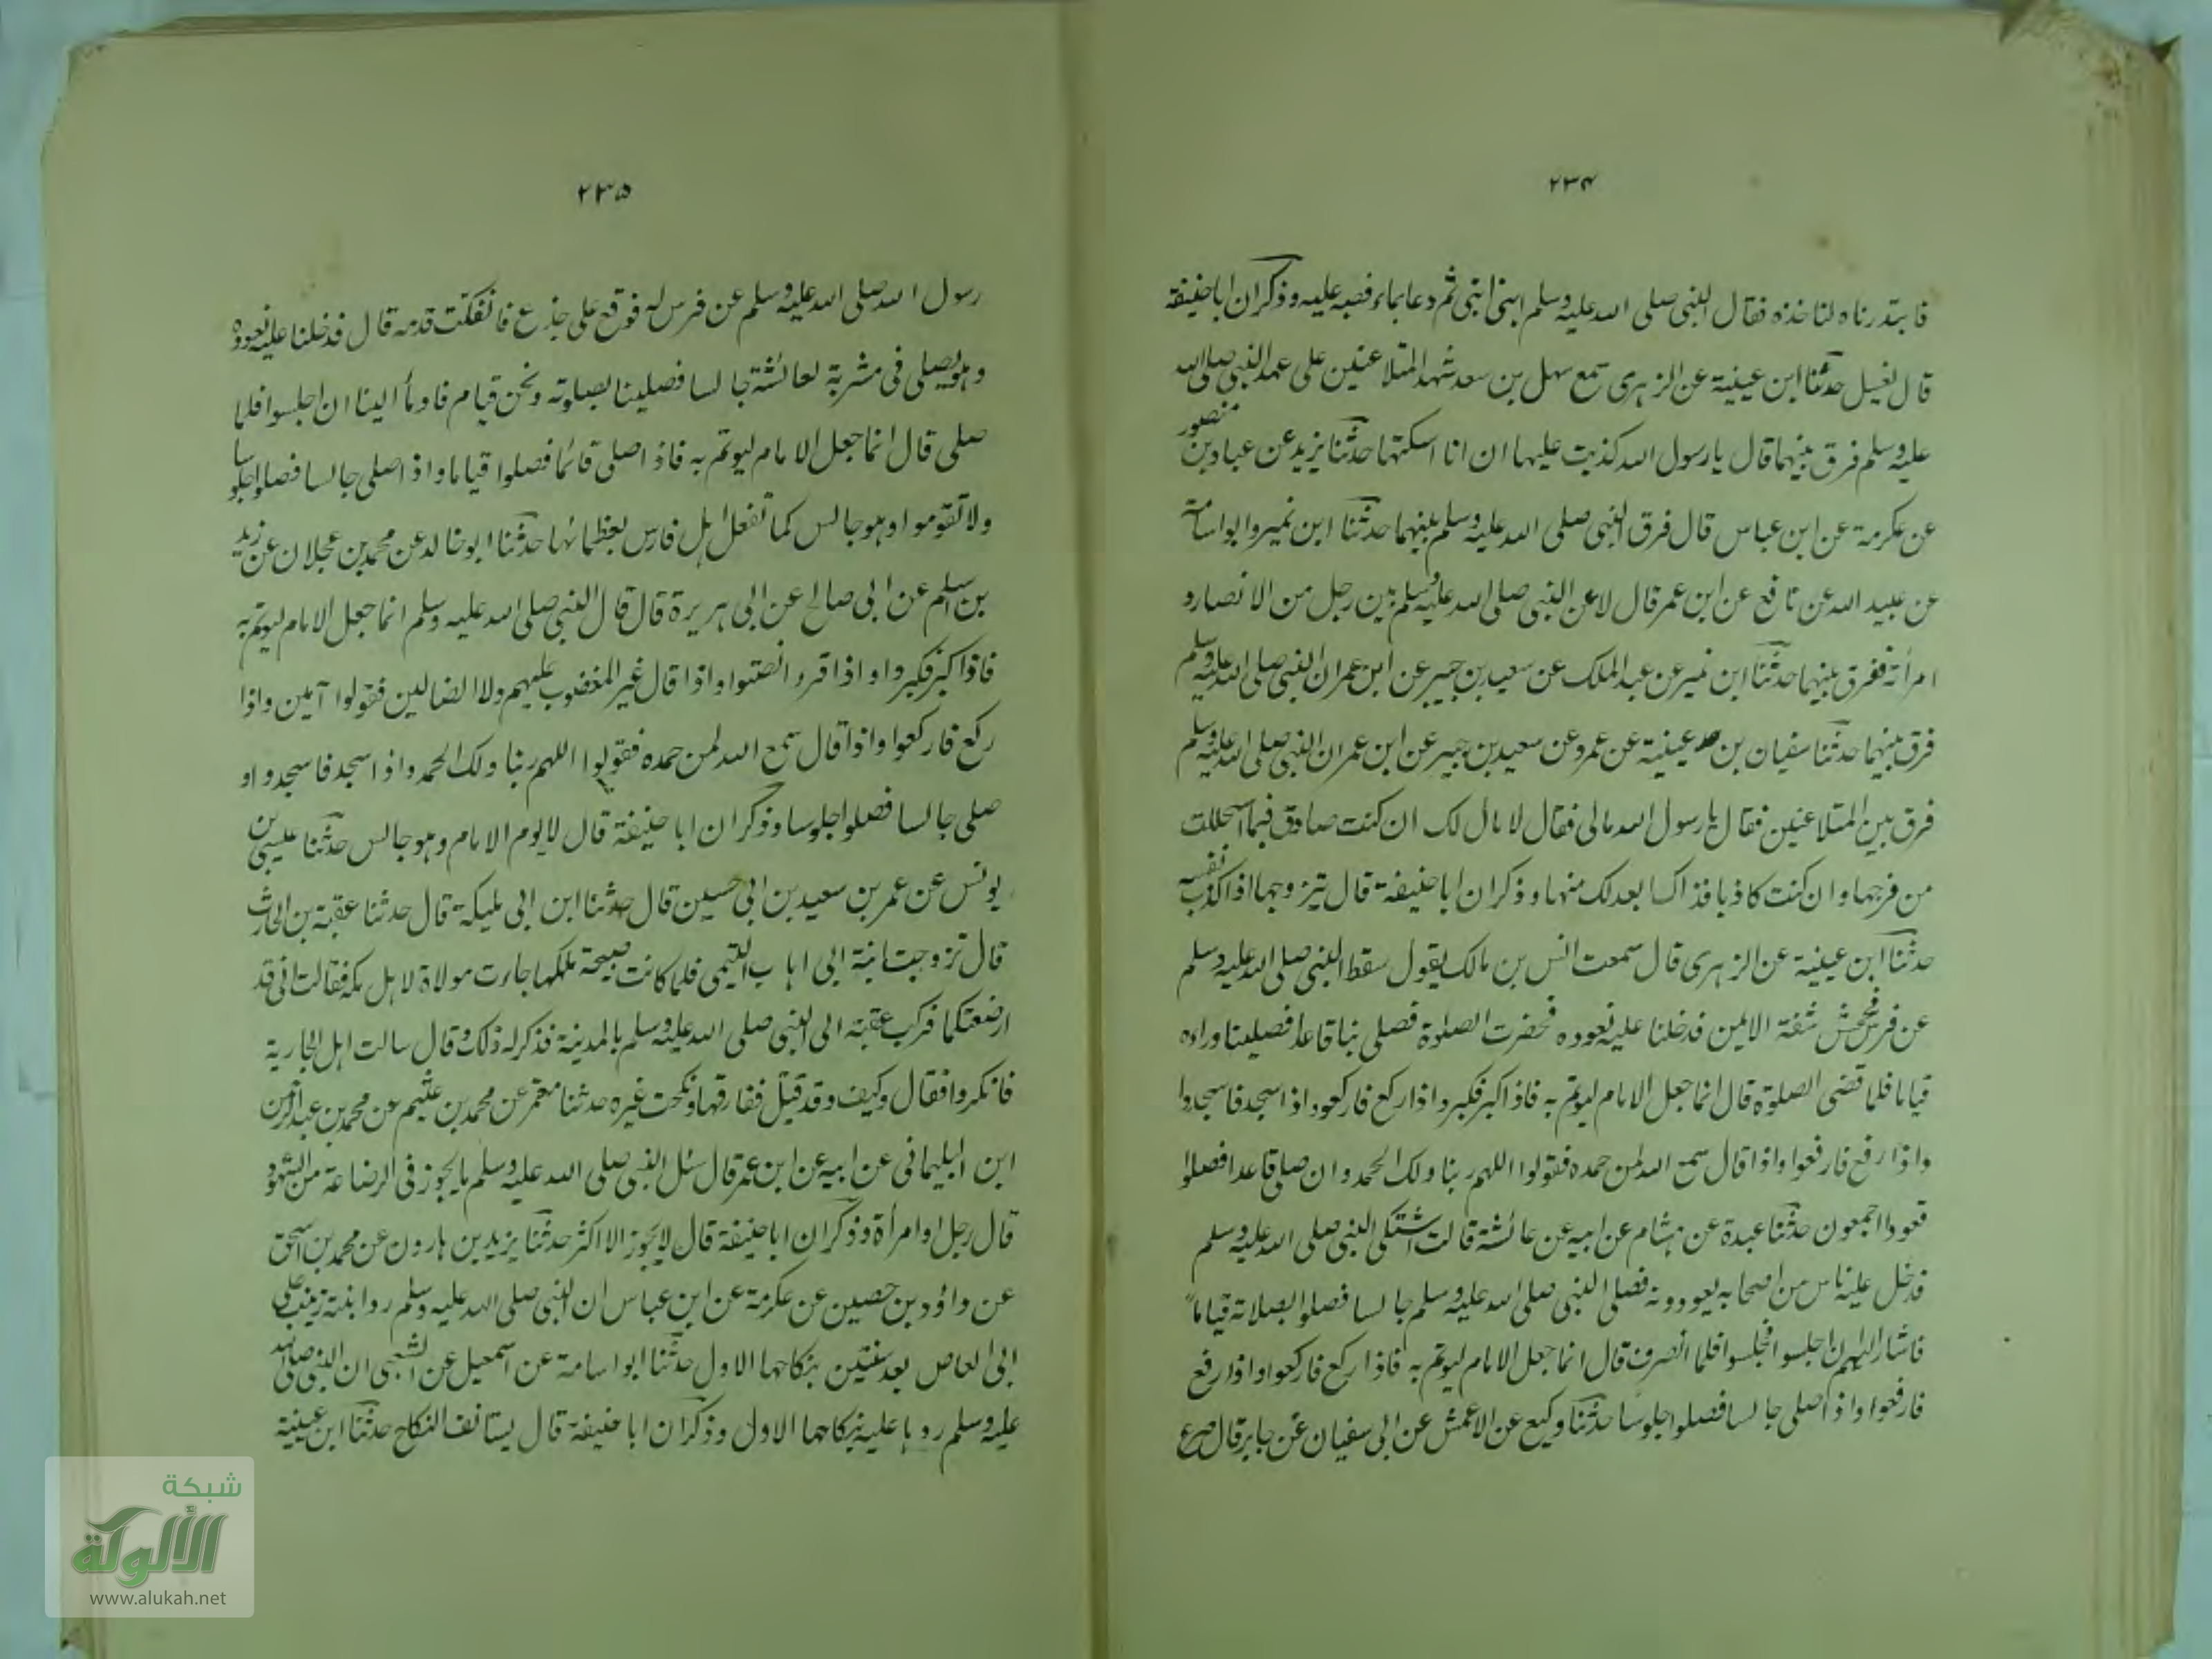 ۲۳۴
فابتدرناه لناخذه فقال النبى صلى الله عليه وسلم ابنى ابنى ثم دعا بماء فصبه عليه وذكر ان ابا حنيفة
قال يغسل حدثنا ابن عيينة عن الزهرى سمع سهل بن سعد شهد المتلاعنين على عهد النبى صلى الله
عليه وسلم فرق بينهما قال يا رسول الله كذبت عليها ان انا امسكتها حدثنا يزيد عن عباد بن منصور
عن عكرمة عن ابن عباس قال فرق النبى صلى الله عليه وسلم بينهما حدثنا ابن نمير وابو اسامة
عن عبيد الله عن نافع عن ابن عمر قال لاعن النبى صلى الله عليه وسلم بين رجل من الانصار و
امرأته ففرق بينهما حدثنا ابن نمير عن عبد الملك عن سعيد بن جبير عن ابن عمر ان النبى صلى الله عليه وسلم
فرق بينهما حدثنا سفيان بن عيينة عن عمرو عن سعيد بن جبير عن ابن عمر ان النبى صلى الله عليه وسلم
فرق بين المتلاعنين فقال يا رسول الله مالى فقال لا مال لك ان كنت صادق فبما استحللت
من فرجها وان كنت كاذبا فذاك ابعد لك منها وذكر ان ابا حنيفة قال يتزوجها اذا اكذب نفسه
حدثنا ابن عيينة عن الزهرى قال سمعت انس بن مالك يقول سقط النبى صلى الله عليه وسلم
عن فرس فجحش شقه الايمن فدخلنا عليه نعوده فحضرت الصلوة فصلى بنا قاعدا فصلينا وراءه
قياما فلما قضى الصلوة قال انما جعل الامام ليؤتم به فاذا كبر فكبروا واذا ركع فاركعوا واذا سجد فاسجدوا
واذا رفع فارفعوا واذا قال سمع الله لمن حمده فقولوا اللهم ربنا ولك الحمد وان صلى قاعدا فصلوا
قعودا اجمعون حدثنا عبدة عن هشام عن ابيه عن عائشة قالت اشتكى النبى صلى الله عليه وسلم
فدخل عليه ناس من اصحابه يعودونه فصلى النبى صلى الله عليه وسلم جالسا فصلوا بصلاته قياماً
فاشار اليهم ان اجلسوا فجلسوا فلما انصرف قال انما جعل الامام ليؤتم به فاذا ركع فاركعوا واذا رفع
فارفعوا واذا صلى جالسا فصلوا جلوسا حدثنا وكيع عن الاعمش عن ابى سفيان عن جابر قال صرع
۲۳۵
رسول الله صلى الله عليه وسلم عن فرس له فوقع على جذع فانفكت قدمه قال فدخلنا عليه نعوده
وهو يصلى فى مشربة لعائشة جالسا فصلينا بصلوته ونحن قيام فاومأ الينا ان اجلسوا فلما
صلى قال انما جعل الامام ليؤتم به فاذا صلى قائما فصلوا قياما واذا صلى جالسا فصلوا جلوسا
ولا تقوموا وهو جالس كما تفعل اهل فارس بعظمائها حدثنا ابو خالد عن محمد بن عجلان عن زيد
بن اسلم عن ابى صالح عن ابى هريرة قال قال النبى صلى الله عليه وسلم انما جعل الامام ليؤتم به
فاذا كبر فكبروا واذا قرء انصتوا واذا قال غير المغضوب عليهم ولا الضالين فقولوا آمين واذا
ركع فاركعوا واذا قال سمع الله لمن حمده فقولوا اللهم ربنا ولك الحمد واذا سجد فاسجدوا و
صلى جالسا فصلوا جلوسا وذكر ان ابا حنيفة قال لا يوم الامام وهو جالس حدثنا عيسى بن
يونس عن عمر بن سعيد بن ابى حسين قال حدثنا ابن ابى مليكة قال حدثنا عقبة بن الحارث
قال تزوجت ابنة ابى اهاب التيمى فلما كانت صبيحة ملكها جاءت مولاة لاهل مكة فقالت انى قد
ارضعتكما فركب عقبة الى النبى صلى الله عليه وسلم بالمدينة فذكر له ذلك وقال سالت اهل الجارية
فانكروا فقال وكيف وقد قيل ففارقها ونكحت غيره حدثنا معمر عن محمد بن عثيم عن محمد بن عبد الرحمن
ابن البيلمانى عن ابيه عن ابن عمر قال سئل النبى صلى الله عليه وسلم ما يجوز فى الرضاعة من الشهود
قال رجل او امرأة وذكر ان ابا حنيفة قال لا يجوز الا اكثر حدثنا يزيد بن هارون عن محمد بن اسحق
عن داؤد بن حصين عن عكرمة عن ابن عباس ان النبى صلى الله عليه وسلم رد ابنته زينب على
ابى العاص بعد سنتين بنكاحها الاول حدثنا ابو اسامة عن اسمعيل عن الشعبى ان النبى صلى الله
عليه وسلم ردها عليه بنكاحها الاول وذكر ان ابا حنيفة قال يستانف النكاح حدثنا ابن عيينة
شبكة
الألوكة
www.alukah.net